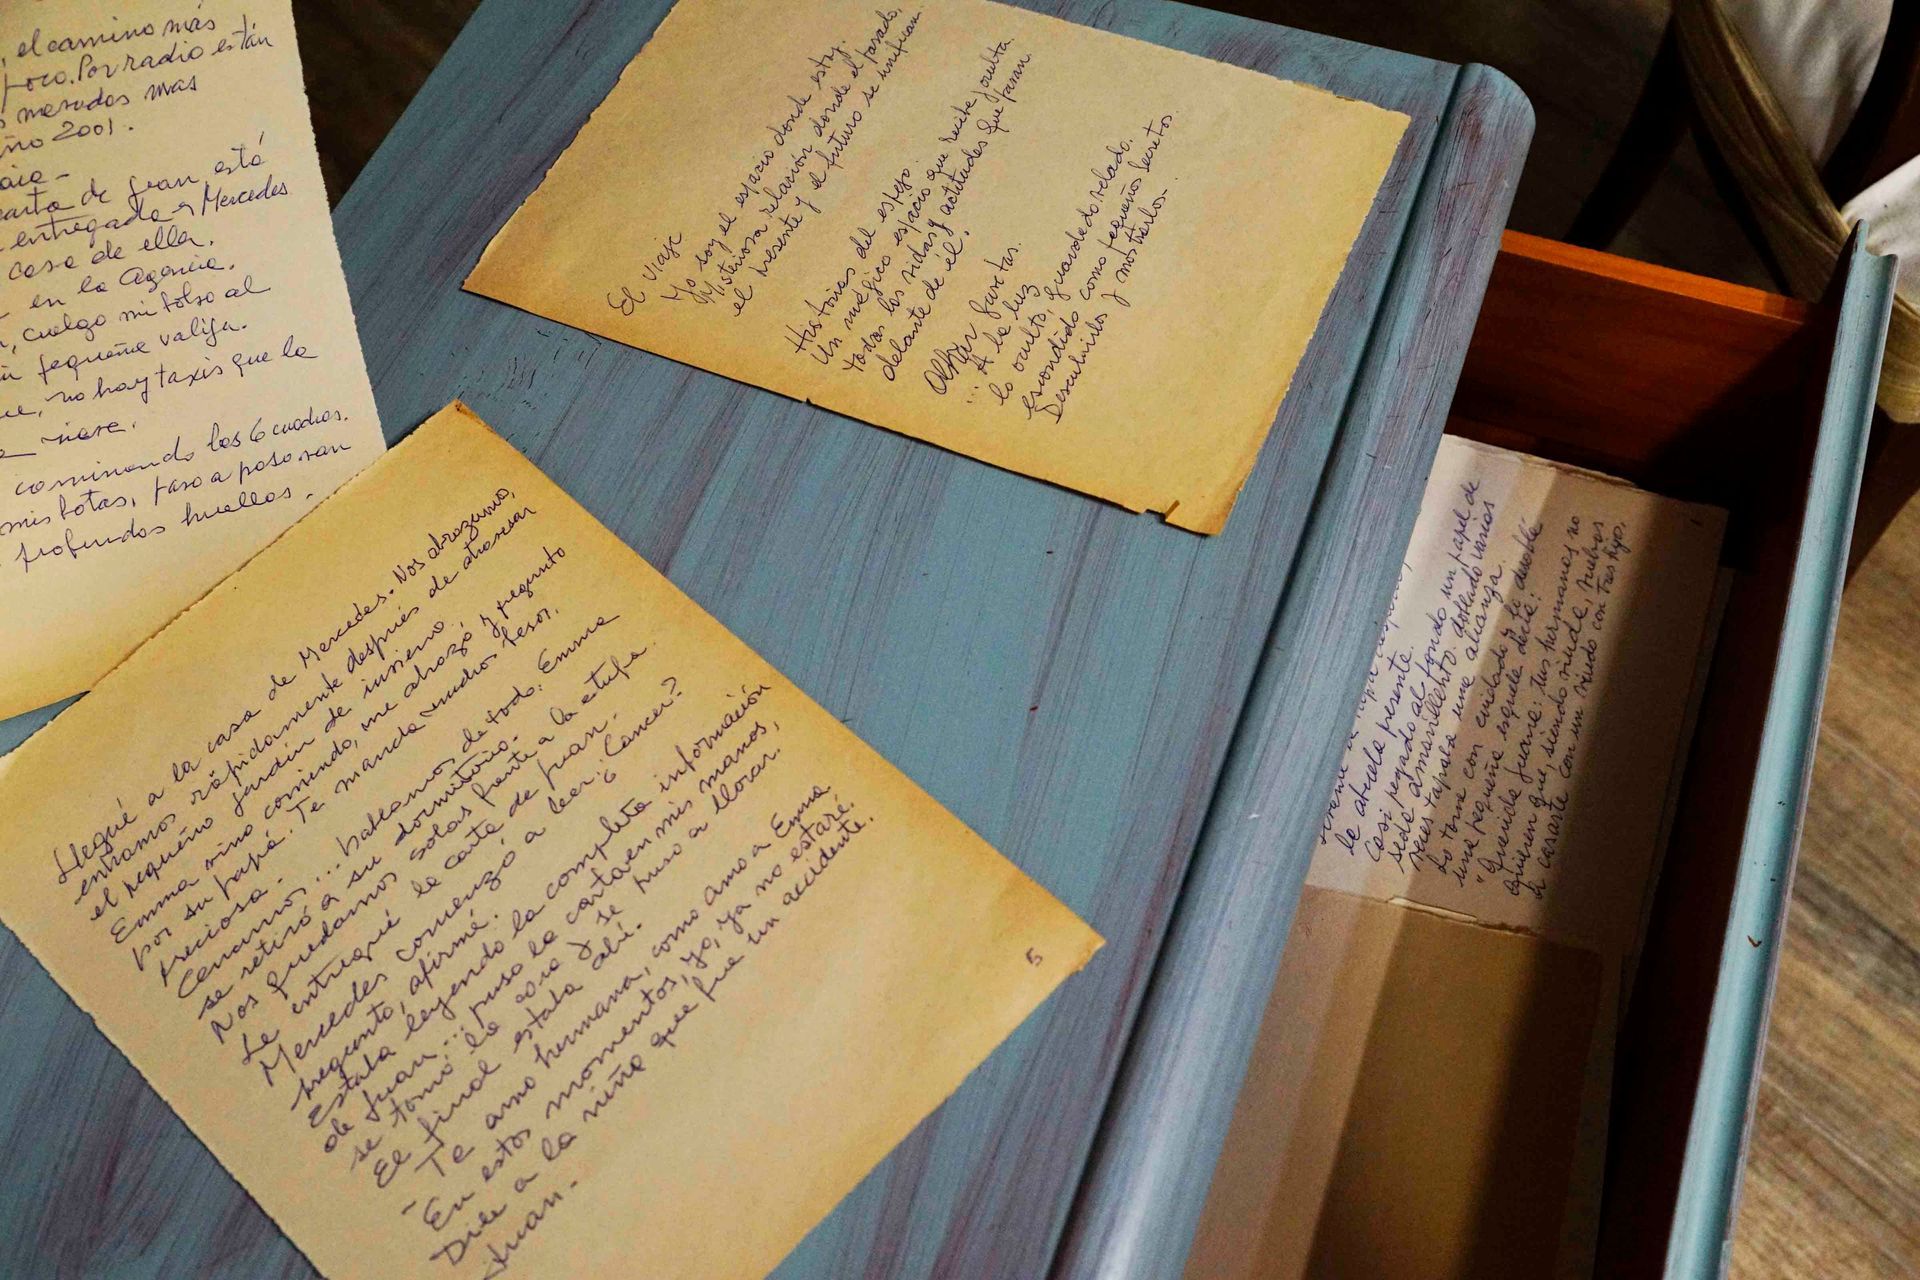 , el camino más
foco. Por radio están
nevadas mas
año 2001.
carta de Juan está
entregada a Mercedes
casa de ella.
en la Agencia.
, cuelgo mi bolso al
pequeña valija.
, no hay taxis que la
caminando las 6 cuadras.
mis botas, paso a paso van
profundas huellas.
El viaje
Yo soy el espacio donde estoy.
Misteriosa relación donde el pasado,
el presente y el futuro se unifican.
Historias del espejo.
Un mágico espacio que recibe y oculta
todas las vidas y actitudes que pasan
delante de él.
Abrir puertas.
... A la luz
lo oculto, guardado velado.
escondido como pequeños secretos
Descubrirlos y mostrarlos.
Llegué a la casa de Mercedes. Nos abrazamos,
entramos rápidamente después de atravesar
el pequeño jardín de invierno.
Emma vino corriendo, me abrazó y preguntó
por su papá. Te manda muchos besos,
preciosa.
Cenamos... hablamos de todo. Emma
se retiró a su dormitorio.
Nos quedamos solas frente a la estufa.
Le entregué la carta de Juan.
Mercedes comenzó a leer. ¿Cáncer?
preguntó, afirmé.
Estaba leyendo la completa información
de Juan... puso la carta en mis manos,
se tomó la cara y se puso a llorar.
El final estaba ahí.
- Te amo hermana, como amo a Emma
- En estos momentos, yo, ya no estaré.
Dile a la niña que fue un accidente.
Juan -
5
la abuela presente.
Casi pegado al fondo un papel de
seda amarillento, doblado varias
veces tapaba una alianza.
Lo tomé con cuidado y lo desdoblé
una pequeña esquela decía:
"Querida Juana: tus hermanas no
quieren que, siendo viuda, vuelvas
a casarte con un viudo con tres hijos.